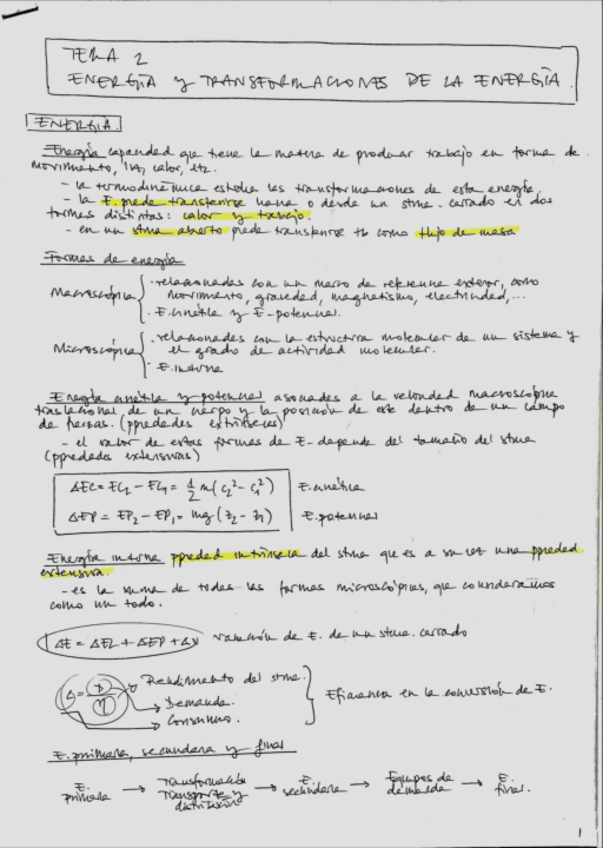 TEMA 2
ENERGÍA Y TRANSFORMACIONES DE LA ENERGÍA.
ENERGÍA.
Energía capacidad que tiene la materia de producir trabajo en forma de
movimiento, luz, calor, etc.
- la termodinámica estudia las transformaciones de esta energía.
- la E. puede transferirse hacia o desde un stma. cerrado en dos
formas distintas: calor y trabajo.
- en un stma abierto puede transferirse tb como flujo de masa
Formas de energía
Macroscópica
· relacionadas con un marco de referencia exterior, como
movimiento, gravedad, magnetismo, electricidad,...
· E. cinética y E. potencial.
Microscópica
· relacionadas con la estructura molecular de un sistema y
el grado de actividad molecular.
· E. interna
Energía cinética y potencial asociadas a la velocidad macroscópica
traslacional de un cuerpo y la posición de este dentro de un campo
de fuerzas. (ppiedades extrínsecas)
- el valor de estas formas de E. depende del tamaño del stma
(ppiedades extensivas)
ΔEC = EC2 - EC1 = 1/2 m (c2² - c1²) E. cinética
ΔEP = EP2 - EP1 = mg (z2 - z1) E. potencial
Energía interna ppiedad intrínseca del stma que es a su vez una ppiedad
extensiva.
- es la suma de todas las formas microscópicas, que consideramos
como un todo.
ΔE = ΔEC + ΔEP + ΔU variación de E. de un stma. cerrado
C = D/η
Rendimiento del stma.
Demanda.
Consumo.
Eficiencia en la conversión de E.
E. primaria, secundaria y final
E. primaria → Transformación transporte y distribución → E. secundaria → Equipos de demanda → E. final.
1